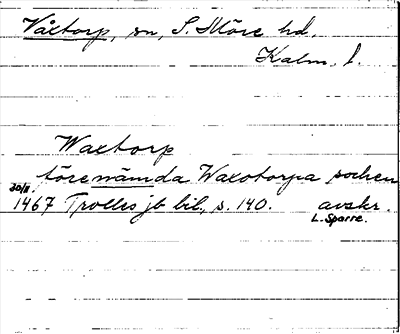 Växtorp, sn, S. Möre hd.
Kalm. l.
Waxtorp
förenämda Waxotorpa sochen
30/11
1467 Trolles jb bil., s. 140. avskr.
L. Sparre.